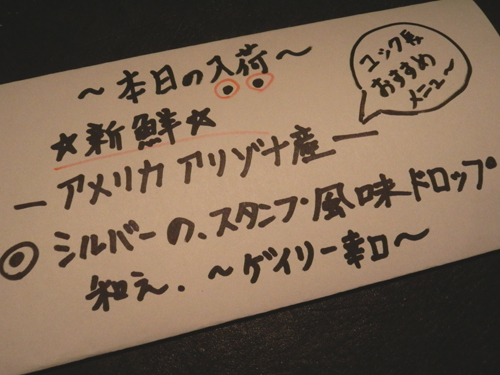 ~本日の入荷~
☆新鮮☆
ーアメリカ アリゾナ産ー
◎シルバーの、スタンプ風味ドロップ
和え.~ゲイリー辛口~
コック長
おすすめ
メニュ~